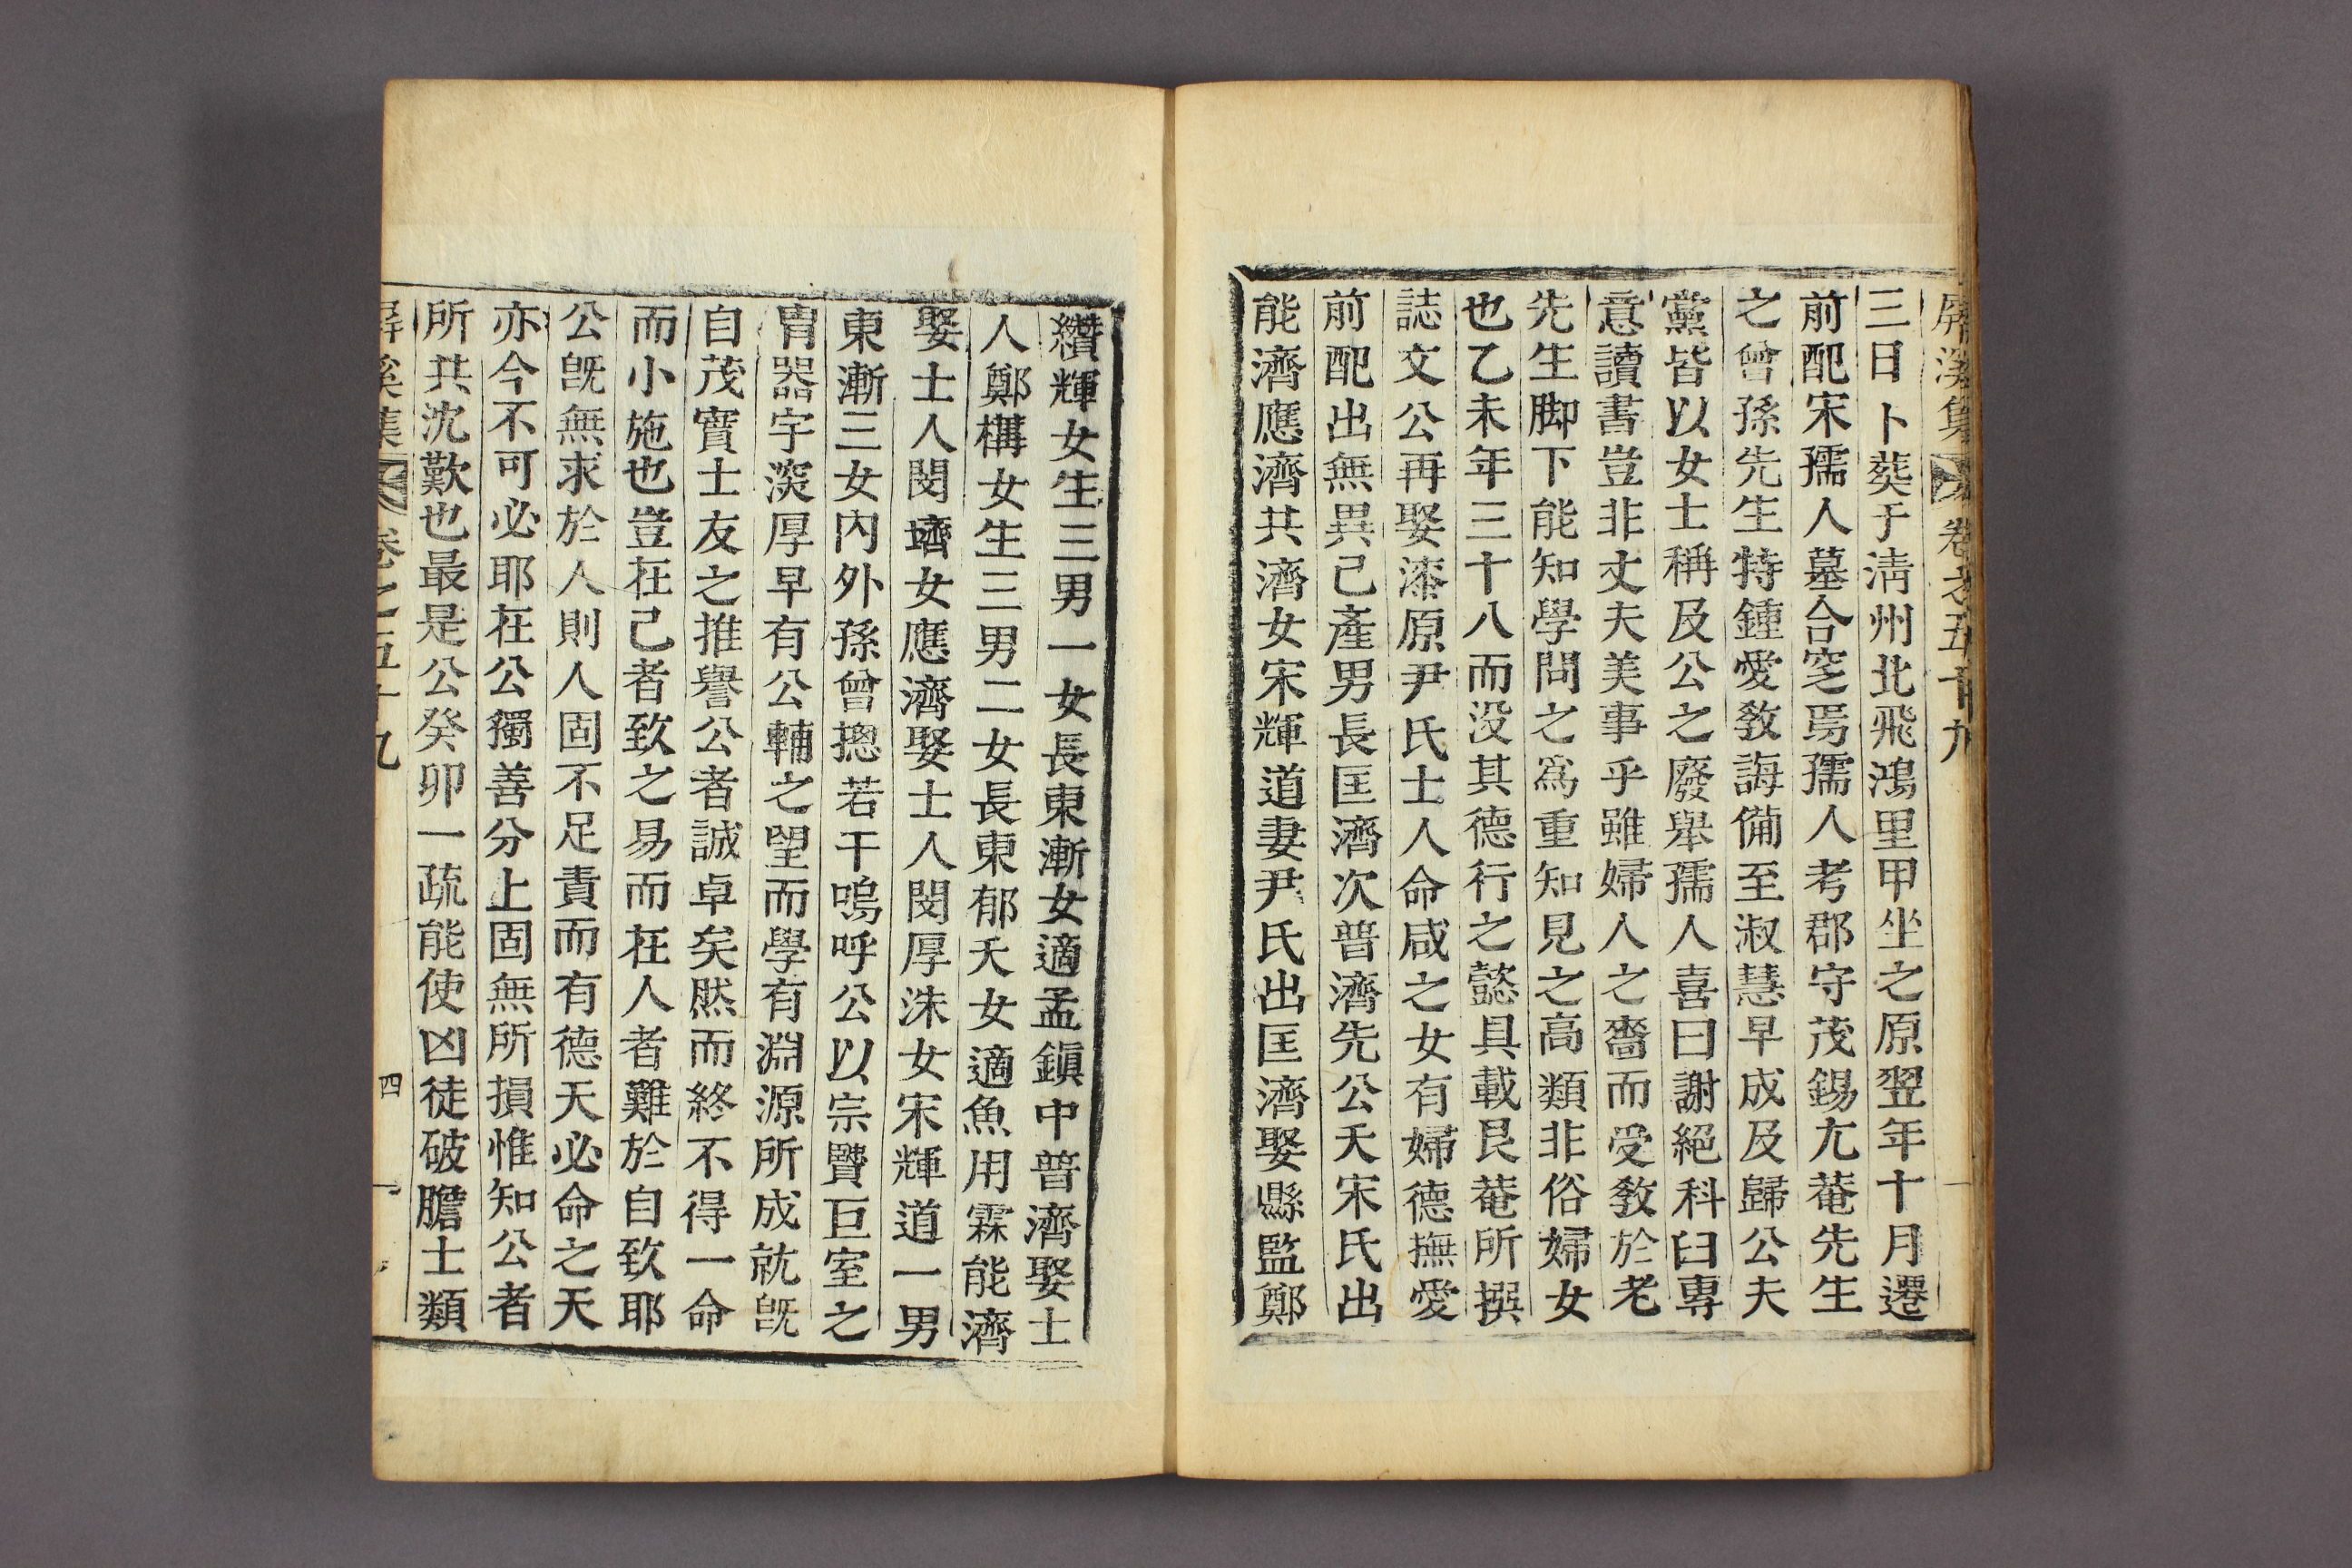 屛溪集 卷之五十九
三日卜葬于淸州北飛鴻里甲坐之原翌年十月遷
前配宋孺人墓合窆焉孺人考郡守茂錫尤菴先生
之曾孫先生特鍾愛敎誨備至淑慧早成及歸公夫
黨皆以女士稱及公之廢擧孺人喜曰謝絕科臼專
意讀書豈非丈夫美事乎雖婦人之嗇而受敎於老
先生脚下能知學問之爲重知見之高類非俗婦女
也乙未年三十八而没其德行之懿具載艮菴所撰
誌文公再娶漆原尹氏士人命咸之女有婦德撫愛
前配出無異己產男長匡濟次普濟先公夭宋氏出
能濟應濟共濟女宋輝道妻尹氏出匡濟娶縣監鄭
纘輝女生三男一女長東漸女適孟鎭中普濟娶士
人鄭構女生三男二女長東郁夭女適魚用霖能濟
娶士人閔𡑞女應濟娶士人閔厚洙女宋輝道一男
東漸三女內外孫曾摠若干嗚呼公以宗賢巨室之
胄器宇深厚早有公輔之望而學有淵源所成就旣
自茂實士友之推譽公者誠卓矣然而終不得一命
而小施也豈在己者致之易而在人者難於自致耶
公旣無求於人則人固不足責而有德天必命之天
亦今不可必耶在公獨善分上固無所損惟知公者
所共沈歎也最是公癸卯一疏能使凶徒破膽士類
屛溪集 卷之五十九 四